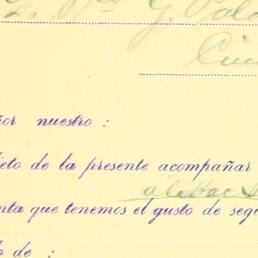 D.
G.
ñor nuestro :
eto de la presente acompañar
nta que tenemos el gusto de seg
o de :